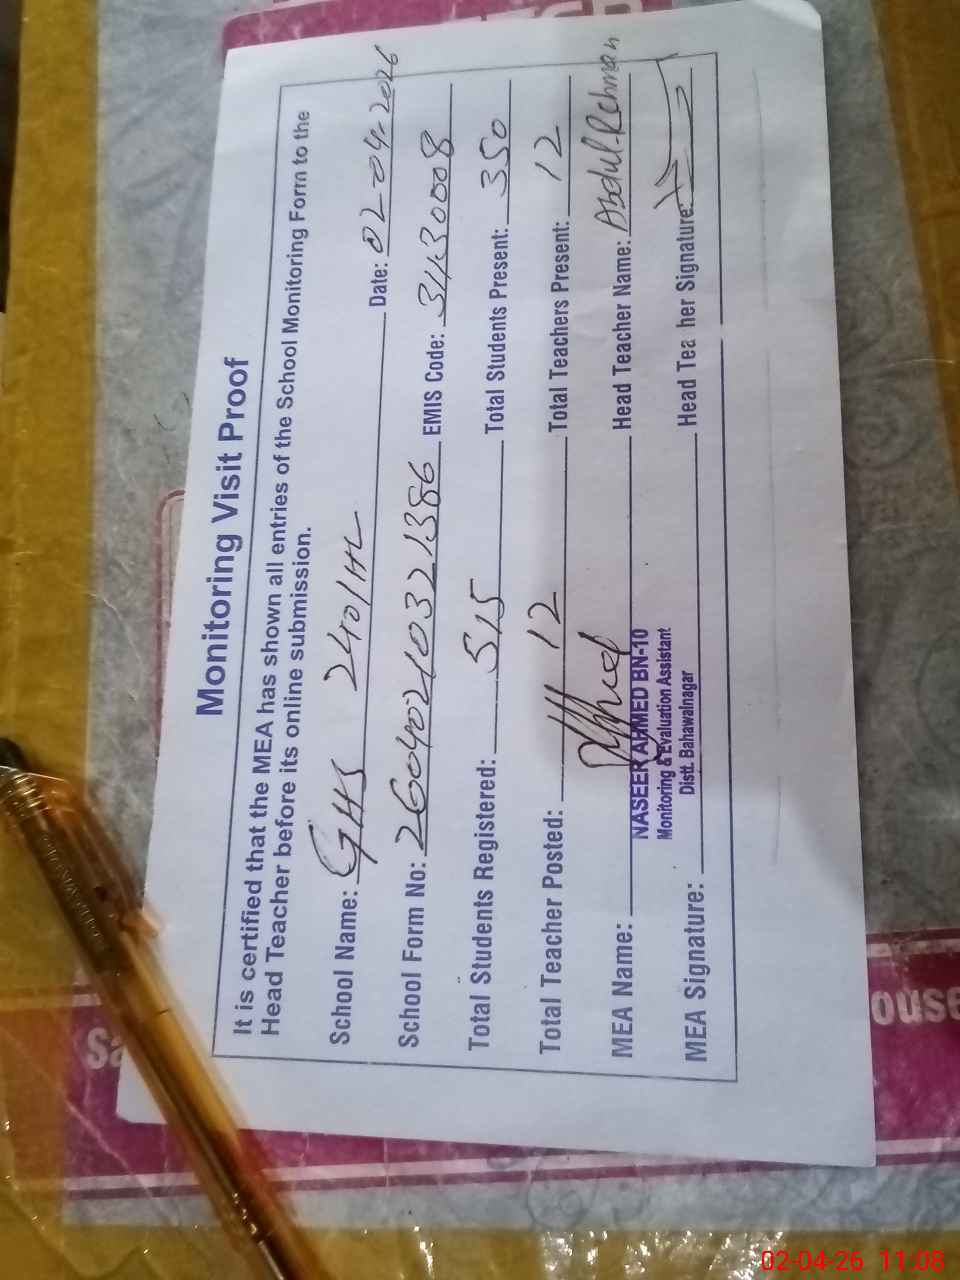 Monitoring Visit Proof
It is certified that the MEA has shown all entries of the School Monitoring Form to the
Head Teacher before its online submission.
School Name: GHS 240/HL Date: 02-04-2026
School Form No: 26040210321386 EMIS Code: 31130008
Total Students Registered: 515 Total Students Present: 350
Total Teacher Posted: 12 Total Teachers Present: 12
MEA Name: Head Teacher Name: Abdul Rehman
NASEER AHMED BN-10
Monitoring & Evaluation Assistant
Distt. Bahawalnagar
MEA Signature: Head Tea her Signature:
ouse
02-04-26 11:08